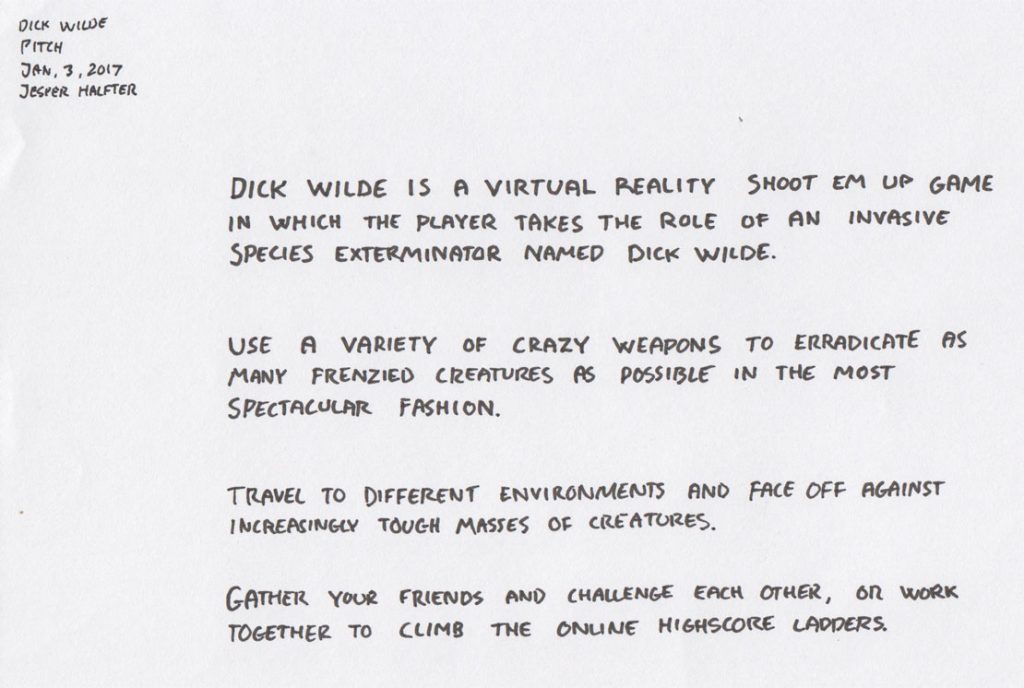 DICK WILDE
PITCH
JAN, 3, 2017
JESPER HALFTER
DICK WILDE IS A VIRTUAL REALITY SHOOT EM UP GAME
IN WHICH THE PLAYER TAKES THE ROLE OF AN INVASIVE
SPECIES EXTERMINATOR NAMED DICK WILDE.
USE A VARIETY OF CRAZY WEAPONS TO ERRADICATE AS
MANY FRENZIED CREATURES AS POSSIBLE IN THE MOST
SPECTACULAR FASHION.
TRAVEL TO DIFFERENT ENVIRONMENTS AND FACE OFF AGAINST
INCREASINGLY TOUGH MASSES OF CREATURES.
GATHER YOUR FRIENDS AND CHALLENGE EACH OTHER, OR WORK
TOGETHER TO CLIMB THE ONLINE HIGHSCORE LADDERS.